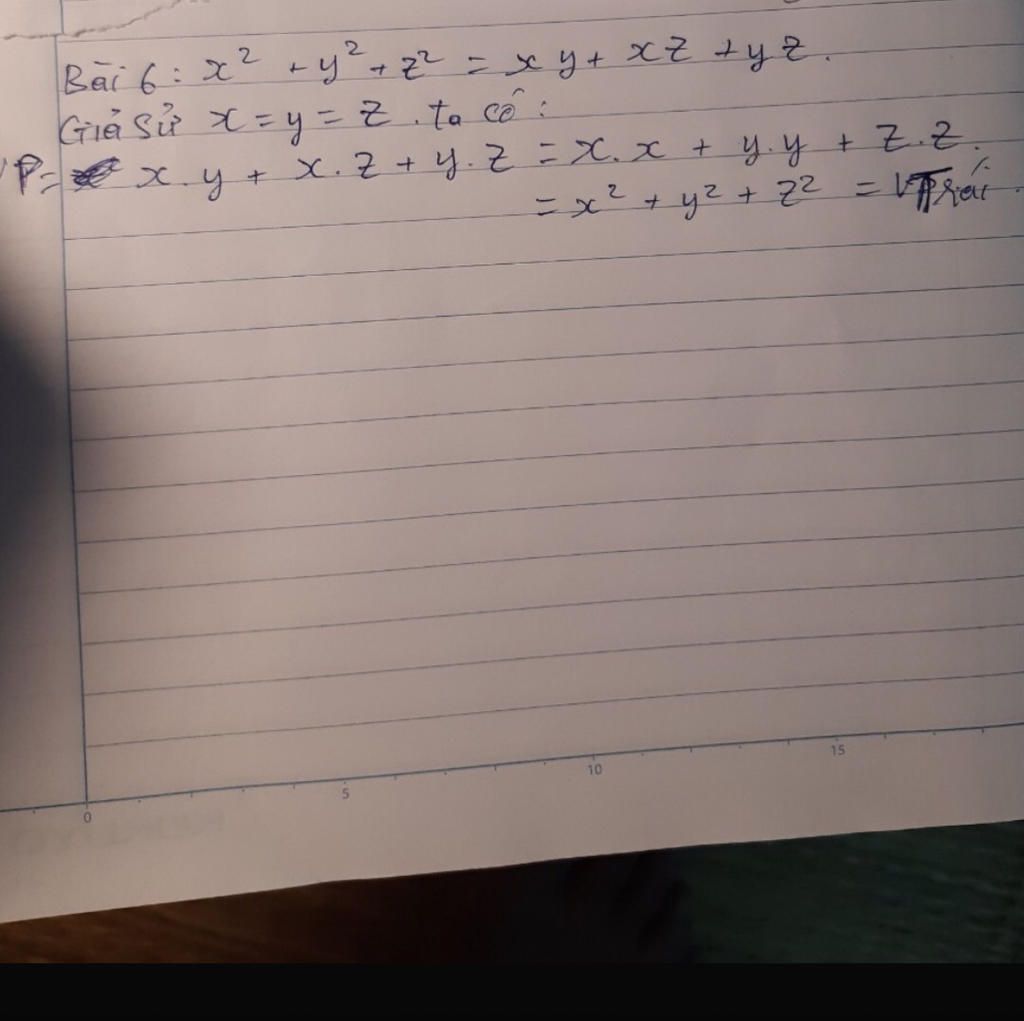 Bài 6: x² + y² + z² = xy + xz + yz.
Giả sử x = y = z . ta có :
VP = x.y + x.z + y.z = x.x + y.y + z.z.
= x² + y² + z² = VTrái.
0 5 10 15